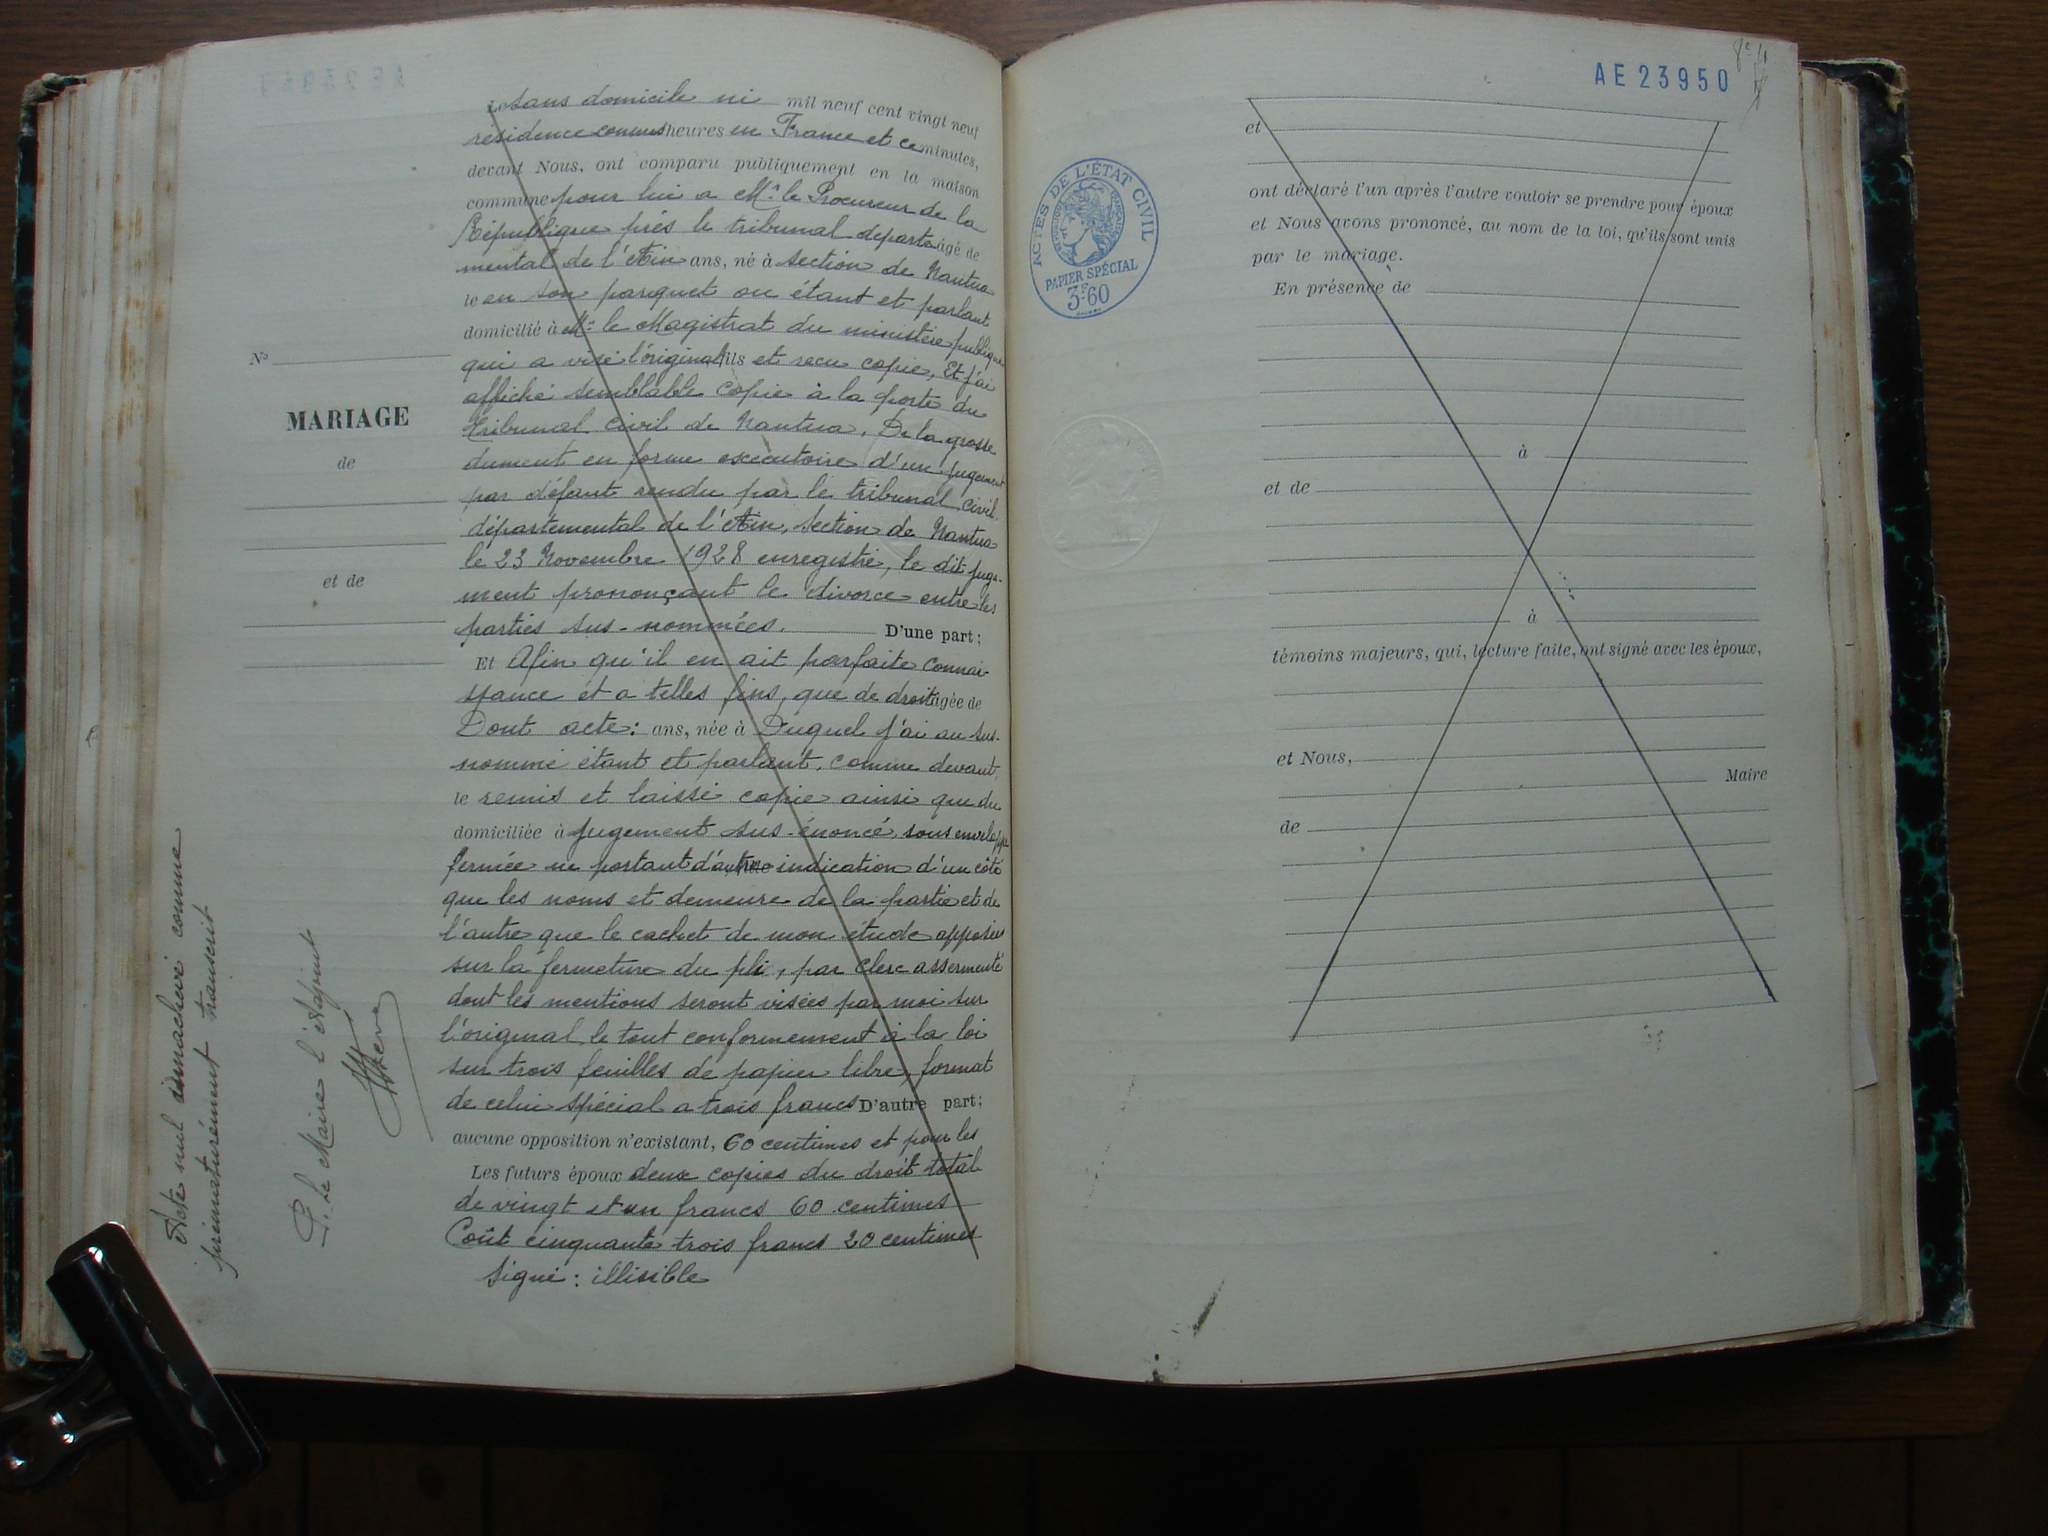 Le sans domicile ni mil neuf cent vingt neuf
résidence connus heures en France et ce minutes,
devant Nous, ont comparu publiquement en la maison
commune pour lui a Mr le Procureur de la
République près le tribunal départe âgé de
mental de l'Ain ans, né à section de Nantua
le en son parquet ou étant et parlant
domicilié à Mr le Magistrat du ministère publique
qui a visé l'original fils et recu copie, Et j'ai
affiché semblable copie à la porte du
Tribunal Civil de Nantua, De la grosse
dument en forme exécutoire d'un jugement
par défaut rendu par le tribunal civil
départemental de l'Ain, section de Nantua
le 23 Novembre 1928 enregistré, le dit juge-
ment prononçant le divorce entre les
parties sus-nommées. D'une part;
Et Afin qu'il en ait parfaite connai-
ssance et a telles fins, que de droit âgée de
Dont acte: ans, née à Duquel j'ai au sus-
nommé étant et parlant, comme devant,
le remis et laissé copie ainsi que du
domiciliée à jugement sus-énoncé, sous enveloppe
fermée ne portant d'autre indication d'un côté
que les noms et demeure de la partie et de
l'autre que le cachet de mon étude apposées
sur la fermeture du pli, par clerc assermenté
dont les mentions seront visées par moi sur
l'original le tout conformement à la loi
sur trois feuilles de papier libre, format
de celui spécial a trois francs D'autre part;
aucune opposition n'existant, 60 centimes et pour les
Les futurs époux deux copies du droit total
de vingt et un francs 60 centimes
Coût cinquante trois francs 20 centimes
Signé: illisible
No
MARIAGE
de
et de
Acte nul inachevé comme
prématurément transcrit
P. le Maire l'Adjoint
AE 23950
ACTES DE L'ÉTAT CIVIL
PAPIER SPÉCIAL
3F.60
et
ont déclaré l'un après l'autre vouloir se prendre pour époux
et Nous avons prononcé, au nom de la loi, qu'ils sont unis
par le mariage.
En présence de
à
et de
à
témoins majeurs, qui, lecture faite, ont signé avec les époux,
et Nous,
Maire
de